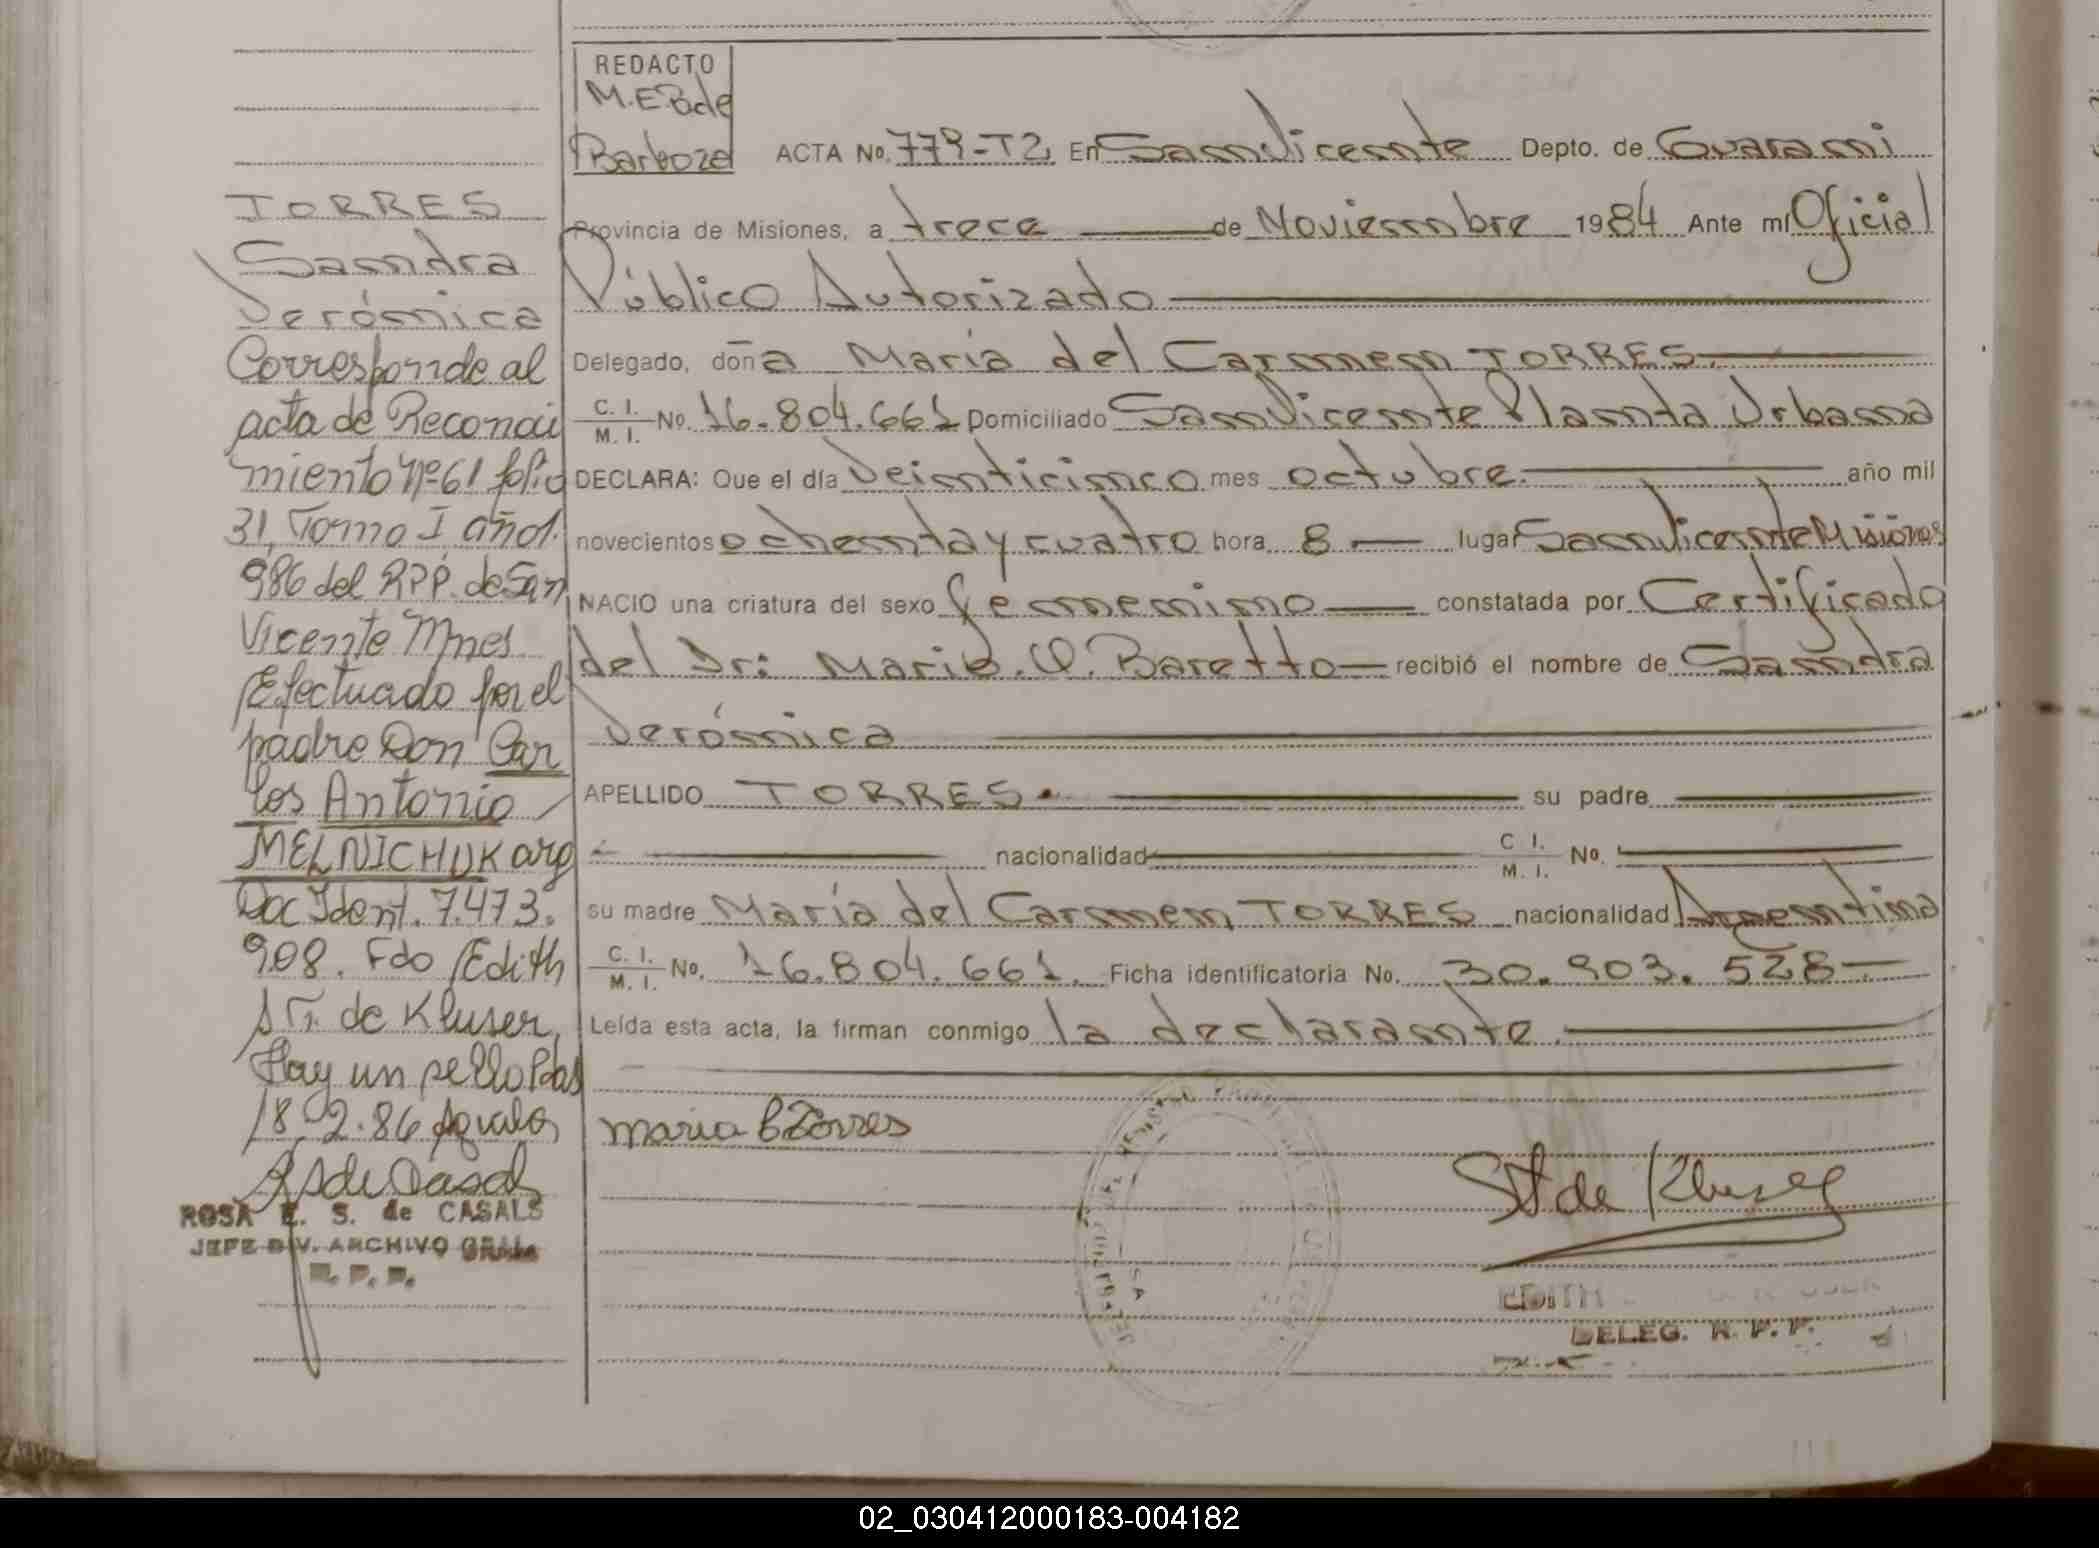 REDACTO
M.E.B de
Barboza
ACTA No. 779-T2, En San Vicente Depto. de Guarani
Provincia de Misiones, a trece de Noviembre 1984 Ante mí Oficial
Público Autorizado
Delegado, doña Maria del Carmen TORRES.
C. I.
M. I. No. 16.804.661 Domiciliado San Vicente Planta Urbana
DECLARA: Que el día Veinticinco mes octubre. año mil
novecientos ochenta y cuatro hora 8 lugar San Vicente Misiones
NACIO una criatura del sexo femenino constatada por Certificado
del Dr: Mario. O. Baretto recibió el nombre de Sandra
Verónica
APELLIDO TORRES. su padre
nacionalidad C I.
M. I. No.
su madre María del Carmen TORRES nacionalidad Argentina
C. I.
M. I. No. 16.804.661. Ficha identificatoria No. 30.903.528
Leída esta acta, la firman conmigo la declarante.
maria C Torres
St de Kluser
EDITH
DELEG. R. P. P.
TORRES
Sandra
Verónica
Corresponde al
acta de Reconoci
miento Nº 61 folio
31, Tomo I año 1.
986 del R.P.P. de San
Vicente Mnes
Efectuado por el
padre Don Car
los Antonio
MELNICHUK arg
Doc Ident. 7.473.
908. Fdo Edith
St. de Kluser,
Hay un sello Pdas
18.2.86
ROSA E. S. de CASALS
JEFE DIV. ARCHIVO GRAL.
R. P. P.
02_030412000183-004182